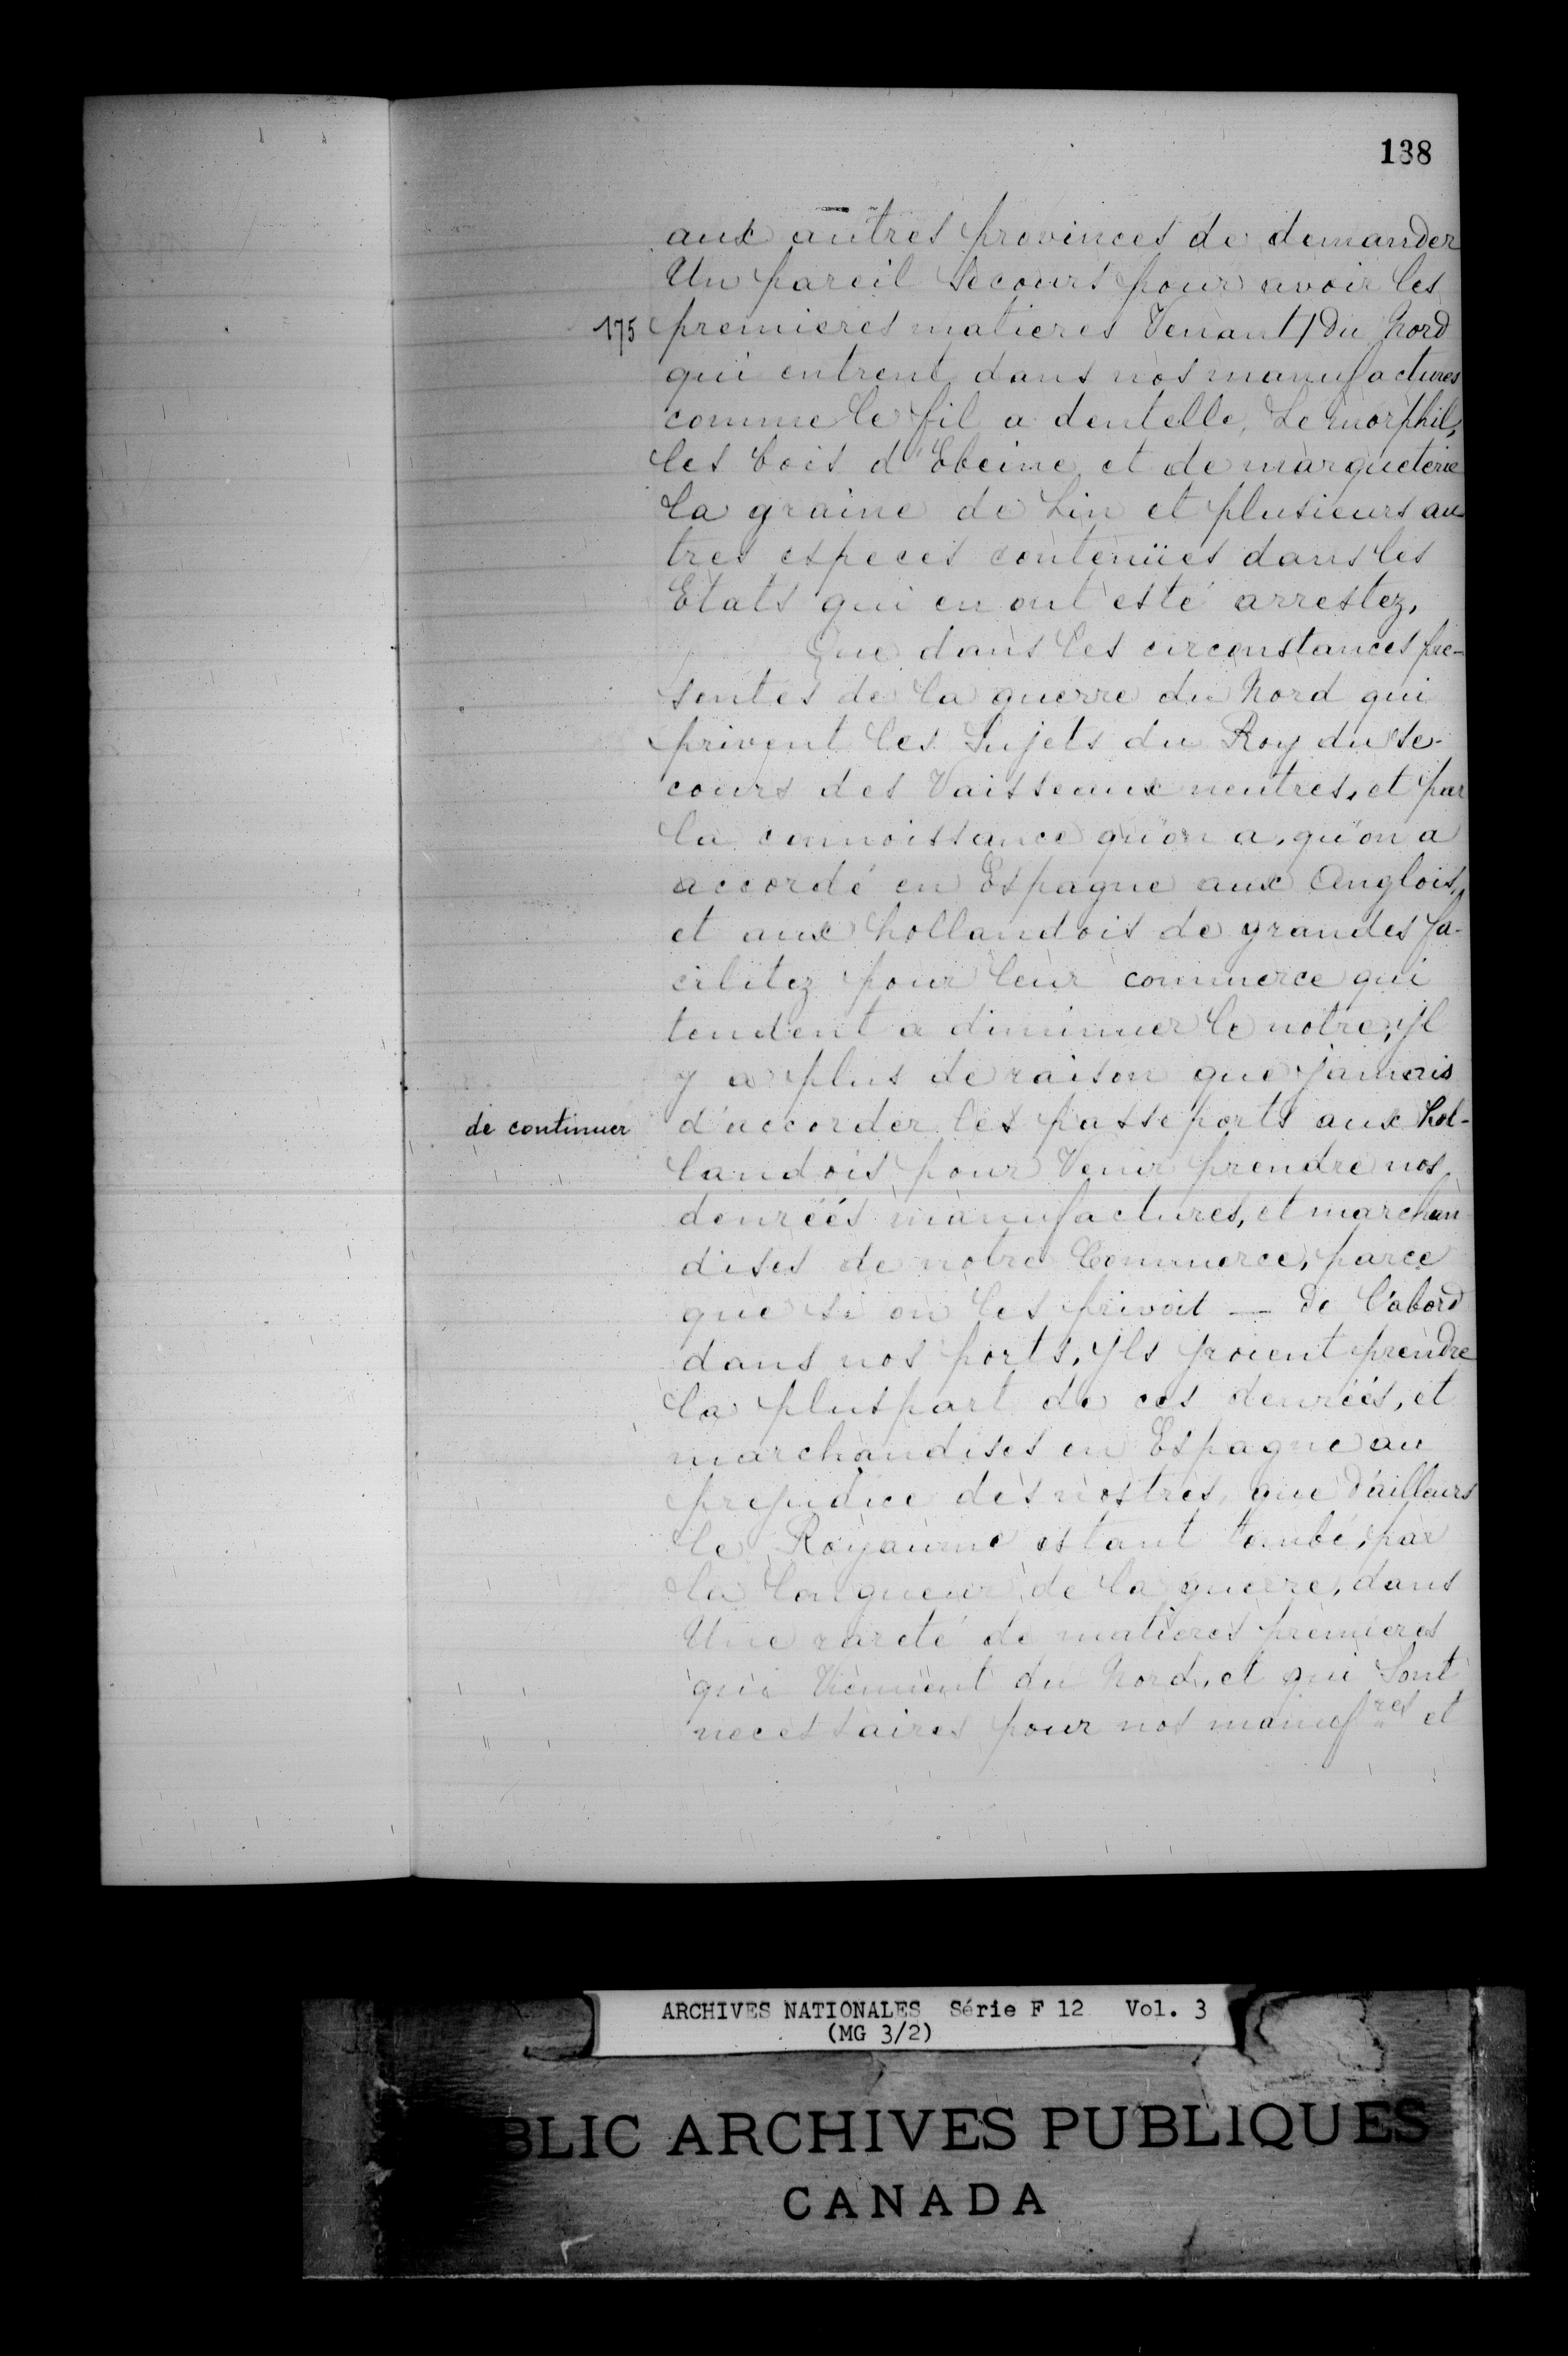 138
aux autres provinces de demander
Un pareil secours pour avoir les
175 premieres matieres Venant / du Nord
qui entrent dans nos manufactures
comme le fil a dentelle, Le morphil,
les bois d'Ebeine et de marqueterie
la graine de Lin et plusieurs au
tres especes contenües dans les
Etats qui en ont esté arrestez,
Que dans les circonstances pre-
sentes de la guerre du Nord qui
privent les Sujets du Roy du se-
cours des Vaisseaux neutres, et par
la connoissance qu'on a, qu'on a
accordé en Espagne aux Anglois,
et aux hollandois de grandes fa-
cilitez pour leur commerce qui
tendent a diminuer le notre, Jl
y a plus de raison que jamais
de continuer d'accorder les passeports aux hol-
landois pour Venir prendre nos
denréés manufactures, et marchan
dises de notre Commerce, parce
que si on les privoit — de l'abord
dans nos ports, Jls Jroient prendre
la pluspart de ces denréés, et
marchandises en Espagne au
prejudice des nostres, que d'ailleurs
le Royaume estant tombé, par
la longueur de la guerre, dans
Une rareté de matieres premieres
qui Viennent du Nord, et qui Sont
necessaires pour nos manufres et
ARCHIVES NATIONALES Série F 12 Vol. 3
(MG 3/2)
BLIC ARCHIVES PUBLIQUES
CANADA